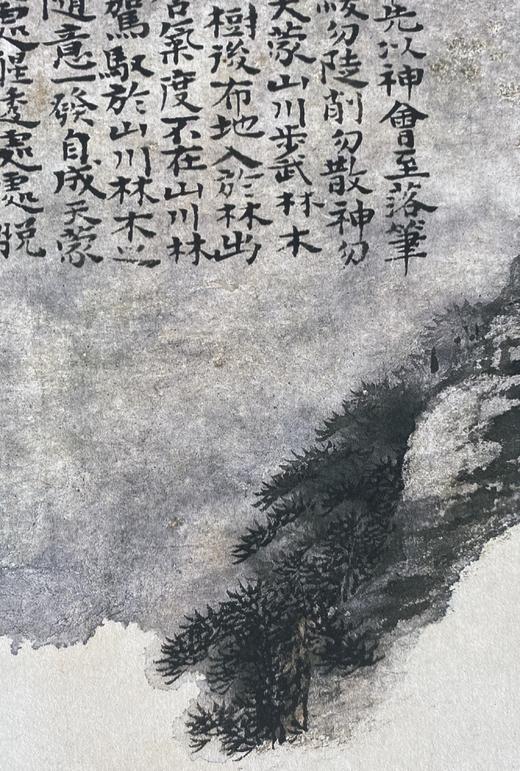 先以神會至落筆
勿陡削勿散神勿
天蒙山川步武林木
樹後布地入於林出
氣度不在山川林
駕馭於山川林木之
隨意一發自成天蒙
處醒透處處脫